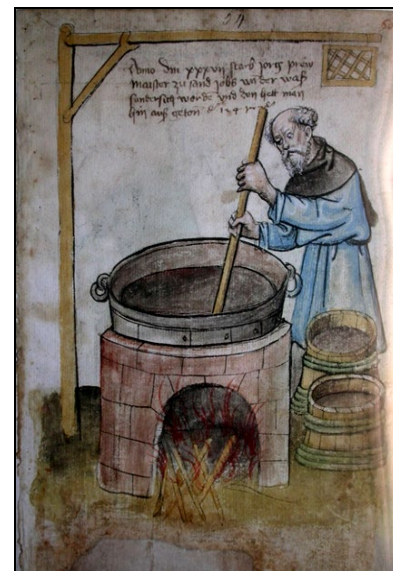 Anno dm xxxvii starb jorg prew
maister zu sand jobs vn der waß
sundersich worde vnd den hett man
hin auß geton